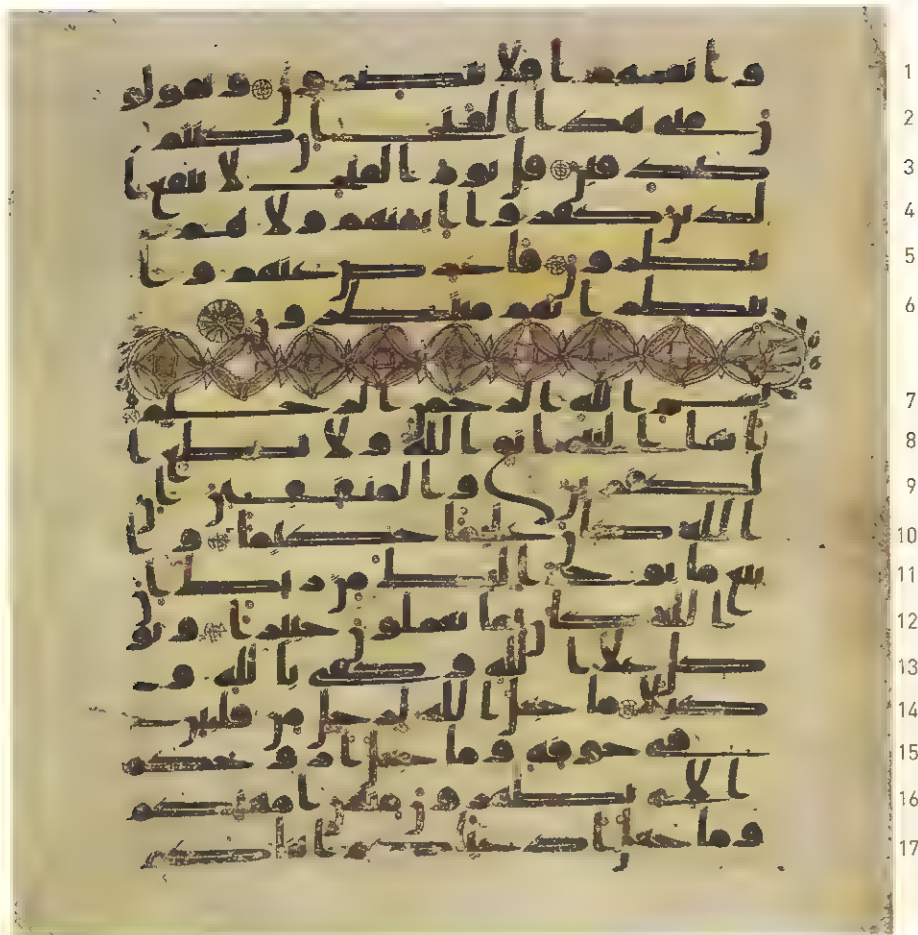 1 وانفسهم افلا يبصرون ويقولو
2 ن متى هذا الفتح ان كنتم
3 صدقين قل يوم الفتح لا ينفع ا
4 لذين كفروا ايمنهم ولا هم
5 ينظرون فاعرض عنهم وا
6 نتظر انهم منتظرون
7 بسم الله الرحمن الرحيم
8 يايها النبي اتق الله ولا تطع ا
9 لكفرين والمنفقين ان
10 الله كان عليما حكيما وا
11 تبع ما يوحى اليك من ربك ان
12 الله كان بما تعملون خبيرا وتو
13 كل على الله وكفى بالله و
14 كيلا ما جعل الله لرجل من قلبين
15 في جوفه وما جعل ازوجكم
16 الاى تظهرون منهن امهتكم
17 وما جعل ادعياكم ابناكم